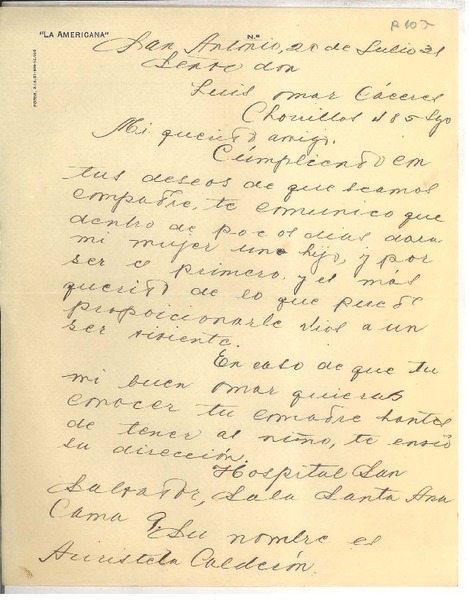 "LA AMERICANA" N.º
San Antonio, 20 de Julio 31
Señor don
Luis Omar Cáceres
Chorrillos 185 Sgo
Mi querido amigo.
Cúmpliendo con
tus deseos de que seamos
compadre, te comunico que
dentro de pocos dias dara
mi mujer uno hijo, y por
ser el primero, y el más
querido de lo que puede
propoicionarle Dios a un
ser viviente.
En caso de que tu
mi buen omar quieras
conocer tu comadre hantes
de tener al niño, te envio
su dirección.
Hospital San
Salvador, Sala Santa Ana
Cama 9, Su nombre es
Auristela Calderón.